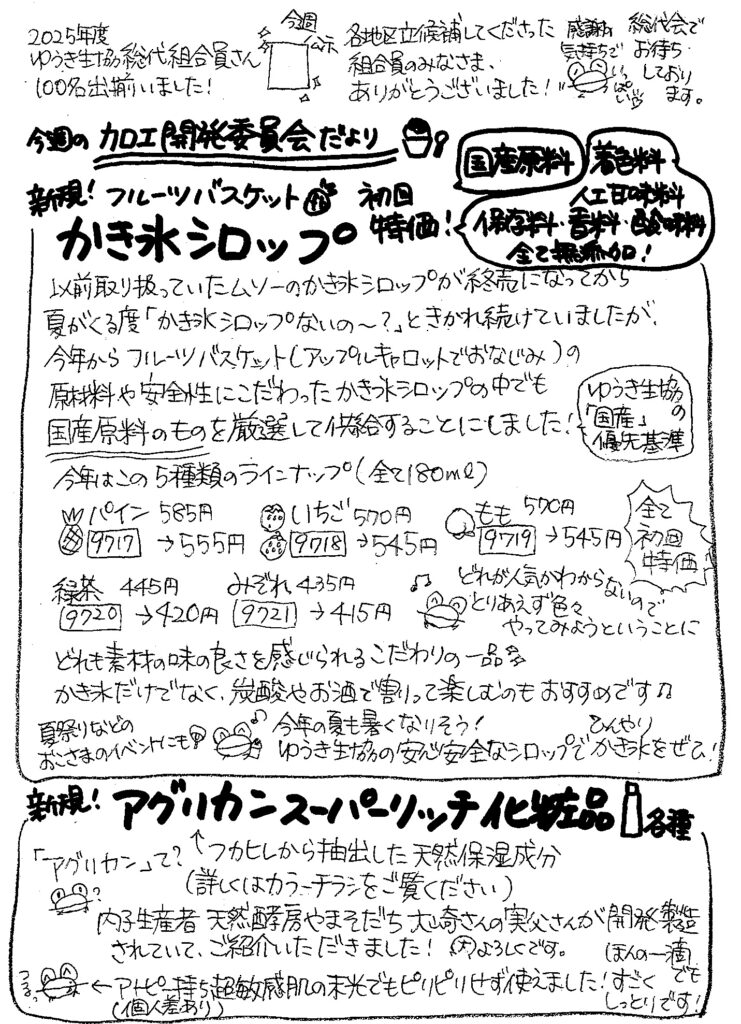 2025年度
ゆうき生協総代組合員さん
100名出揃いました!
今週
公示
各地区立候補してくださった
組合員のみなさま、
ありがとうございました!
感謝の
気持ちで
いっぱい
総代会で
お待ち
しており
ます。
今週の 加工開発委員会だより
国産原料
着色料・
人工甘味料
保存料・香料・酸味料
全て無添加!
新規! フルーツバスケットの 初回
かき氷シロップ 特価!
以前取り扱っていたムソーのかき氷シロップが終売になってから
夏がくる度「かき氷シロップないの〜?」ときかれ続けていましたが、
今年からフルーツバスケット(アップルキャロットでおなじみ)の
原材料や安全性にこだわったかき氷シロップの中でも
国産原料のものを厳選して供給することにしました!
ゆうき生協の
「国産」
優先基準
今年はこの5種類のラインナップ(全て180ml)
パイン 585円
9717 →555円
いちご 570円
9718 →545円
もも 570円
9719 →545円
全て
初回
特価
緑茶 445円
9720 →420円
みぞれ 435円
9721 →415円
どれが人気かわからないので
とりあえず色々
やってみようということに
どれも素材の味の良さを感じられるこだわりの一品
かき氷だけでなく、炭酸やお酒で割って楽しむのもおすすめです♫
夏祭りなどの
おこさまのイベントにも
今年の夏も暑くなりそう!
ひんやり
ゆうき生協の安心安全なシロップでかき氷をぜひ!
新規! アグリカンスーパーリッチ化粧品 各種
「アグリカン」って?
↑フカヒレから抽出した天然保湿成分
(詳しくはカラーチラシをご覧ください)
内子生産者 天然酵房やまそだち 大崎さんの実父さんが開発製造
されていて、ご紹介いただきました! よろしくです。
←アトピー持ち超敏感肌の末光でもピリピリせず使えました!
(個人差あり)
ほんの一滴
でも
すごく
しっとりです!